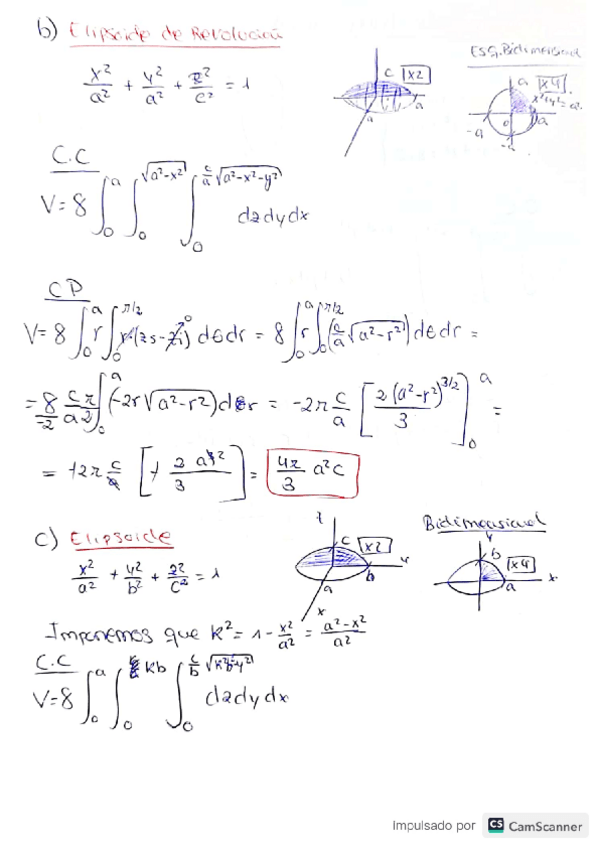 b) Elipsoide de Revolución
x²/a² + y²/a² + z²/c² = 1
c x2
a a
Esq. Bidimensional
a x4
x²+y²=a²
-a 0 a
-a
C.C
V = 8 ∫₀^a ∫₀^√(a²-x²) ∫₀^(c/a √(a²-x²-y²)) dzdydx
CP
V = 8 ∫₀^a r ∫₀^(π/2) (zs - zi) dθdr = 8 ∫₀^a r ∫₀^(π/2) (c/a √(a²-r²)) dθdr =
= 8/-2 c/a π/2 ∫₀^a (-2r √(a²-r²)) dr = -2π c/a [2(a²-r²)^(3/2)/3]₀^a =
= +2π c/a [+ 2 a³/3] = 4π/3 a²c
c) Elipsoide
x²/a² + y²/b² + z²/c² = 1
z
c x2
y
a b
x
Bidimensional
y
b
x4
a x
Imponemos que k² = 1 - x²/a² = (a²-x²)/a²
C.C
V = 8 ∫₀^a ∫₀^kb ∫₀^(c/b √(k²b²-y²)) dzdydx
Impulsado por CS CamScanner